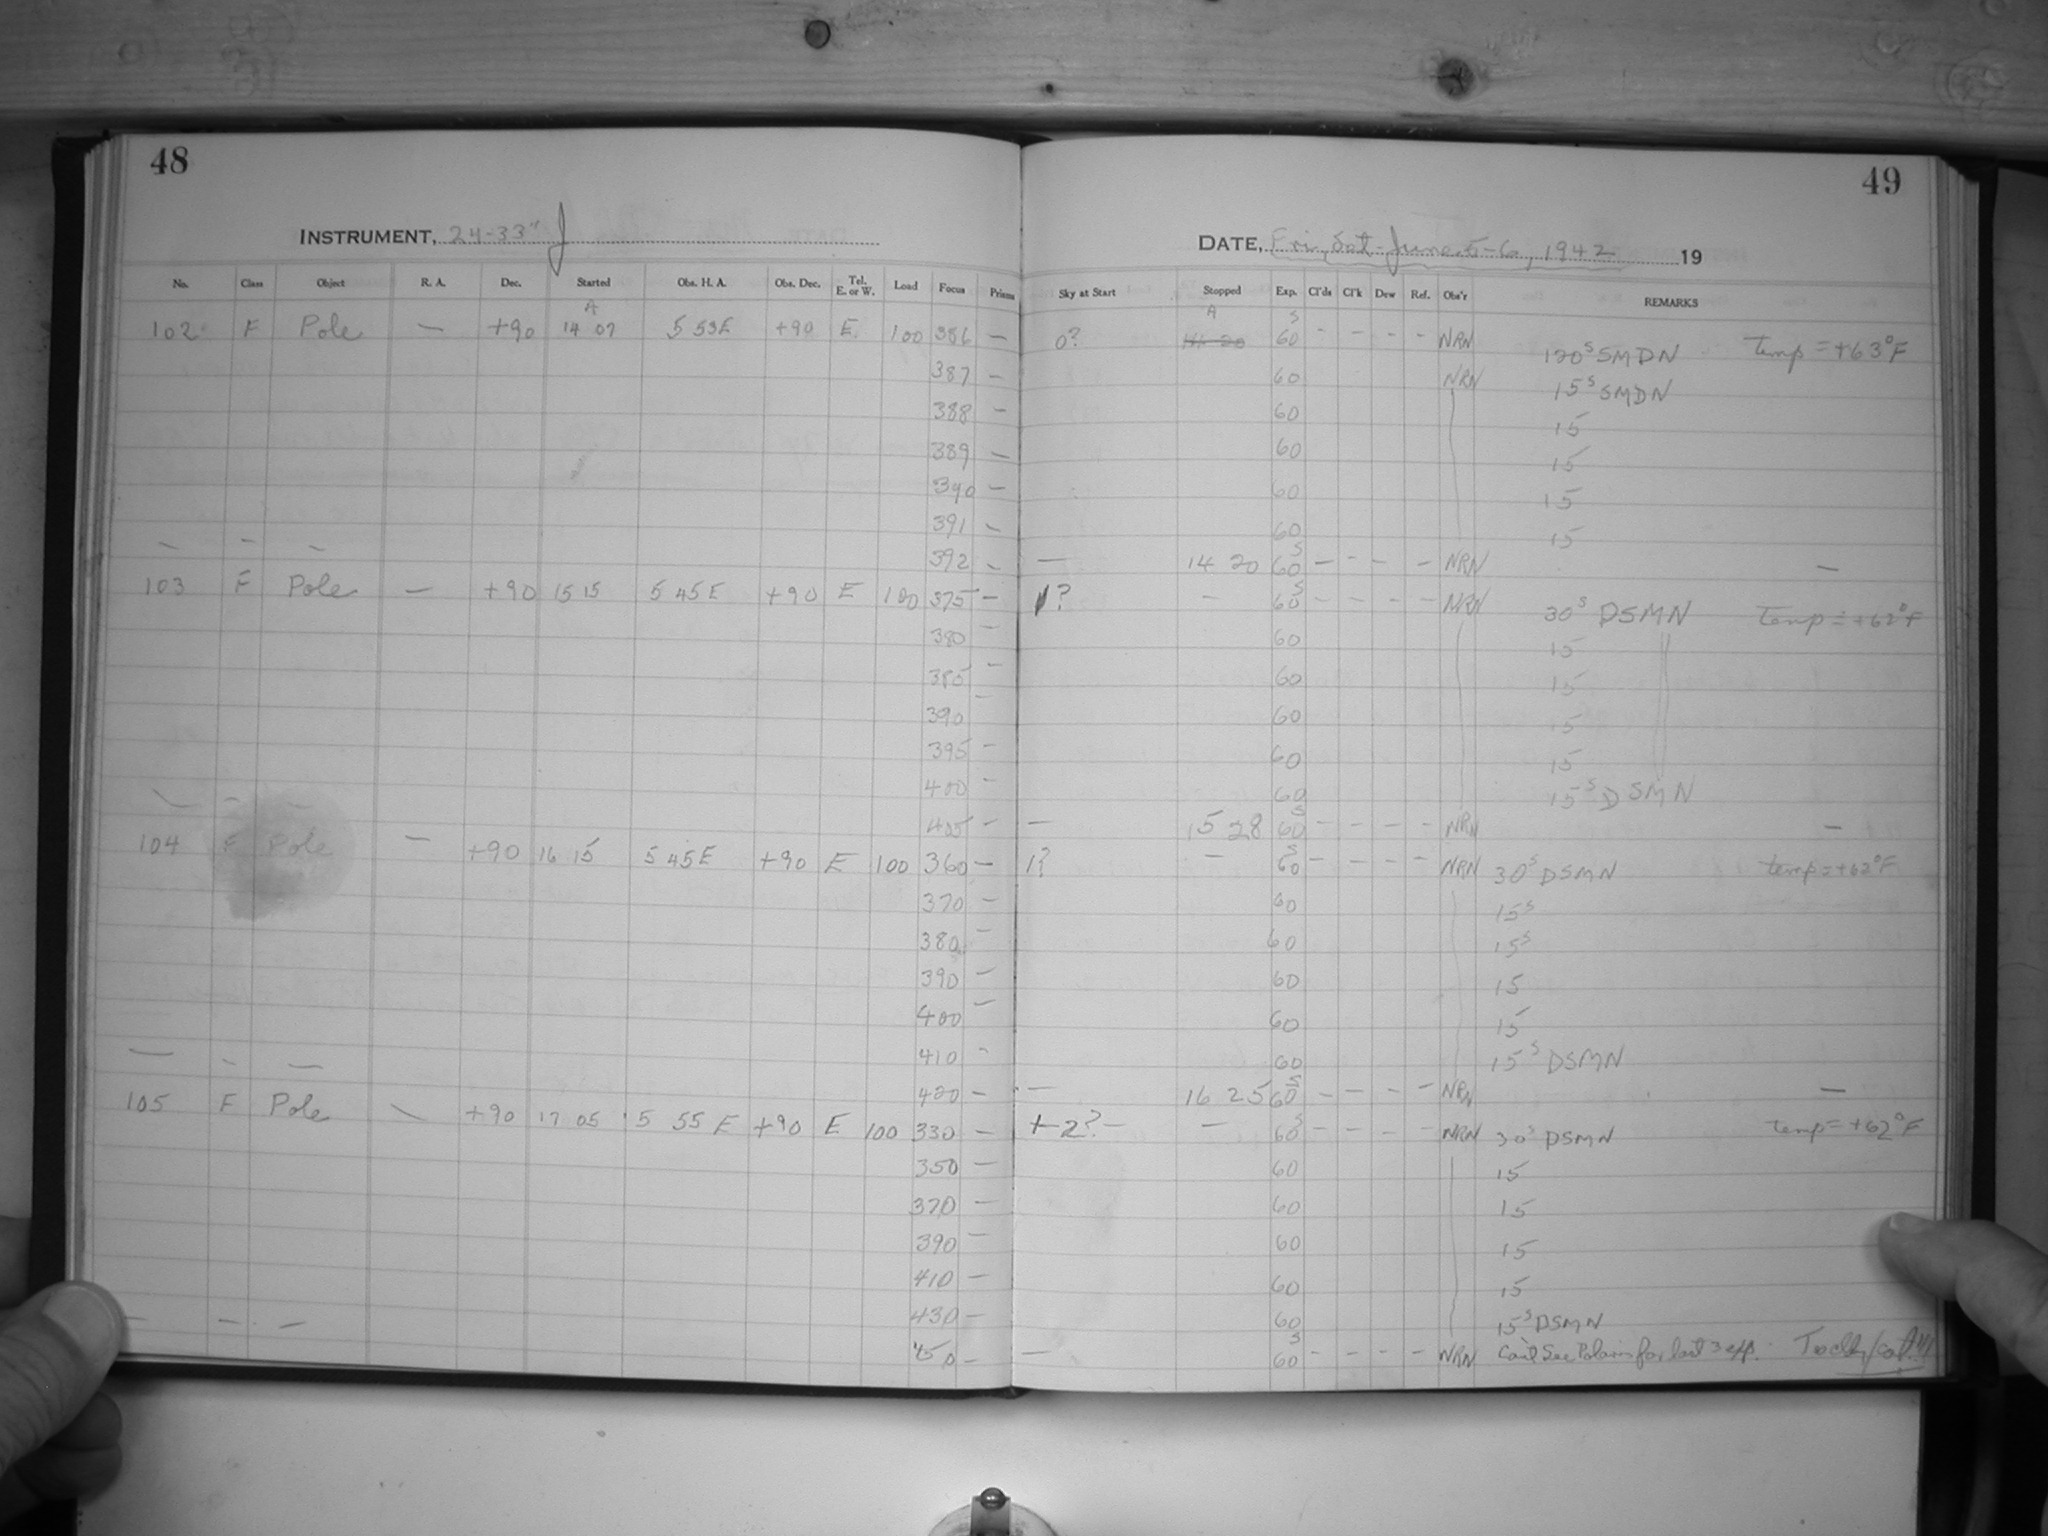 48
INSTRUMENT, 24-33" J
No. Class Object R. A. Dec. Started Obs. H. A. Obs. Dec. Tel. E. or W. Load Focus Prisms
A
102 F Pole — +90 14 07 5 53E +90 E. 100 386 —
387 —
388 —
389 —
390 —
391 —
— — — 392 —
103 F Pole — +90 15 15 5 45 E +90 E 100 375 —
380 —
385 —
390 —
395 —
400 —
— — — 405 —
104 F Pole — +90 16 15 5 45E +90 E 100 360 —
370 —
380 —
390 —
400 —
410 -
— — — 420 —
105 F Pole — +90 17 05 5 55 E +90 E 100 330 —
350 —
370 —
390 —
410 —
430 —
— — — 450 —
49
DATE, Fri, Sat - June 5-6, 1942 19
Sky at Start Stopped Exp. Cl'ds Cl'k Dew Ref. Obs'r REMARKS
A S
0? 14 20 60 - - - - NRN 120s SMDN Temp = +63°F
60 NRN 15s SMDN
60 15
60 15
60 15
60 15
— 14 20 60s — - - - NRN —
1? - 60s - - - - NRN 30s DSMN Temp = +62°F
60 15
60 15
60 15
60 15
60 15s DSMN
— 15 28 60s - - - - NRN —
1? - 60s - - - - NRN 30s DSMN temp = +62°F
60 15s
60 15s
60 15
60 15
60 15s DSMN
— 16 25 60s - - - - NRN —
+2? — — 60s - - - - NRN 30s DSMN temp = +62°F
60 15
60 15
60 15
60 15
60 15s DSMN
— 60s - - - - NRN Can't See Polaris for last 3 exp.